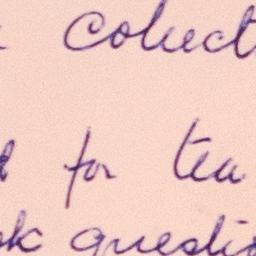 collect
for tea
questio